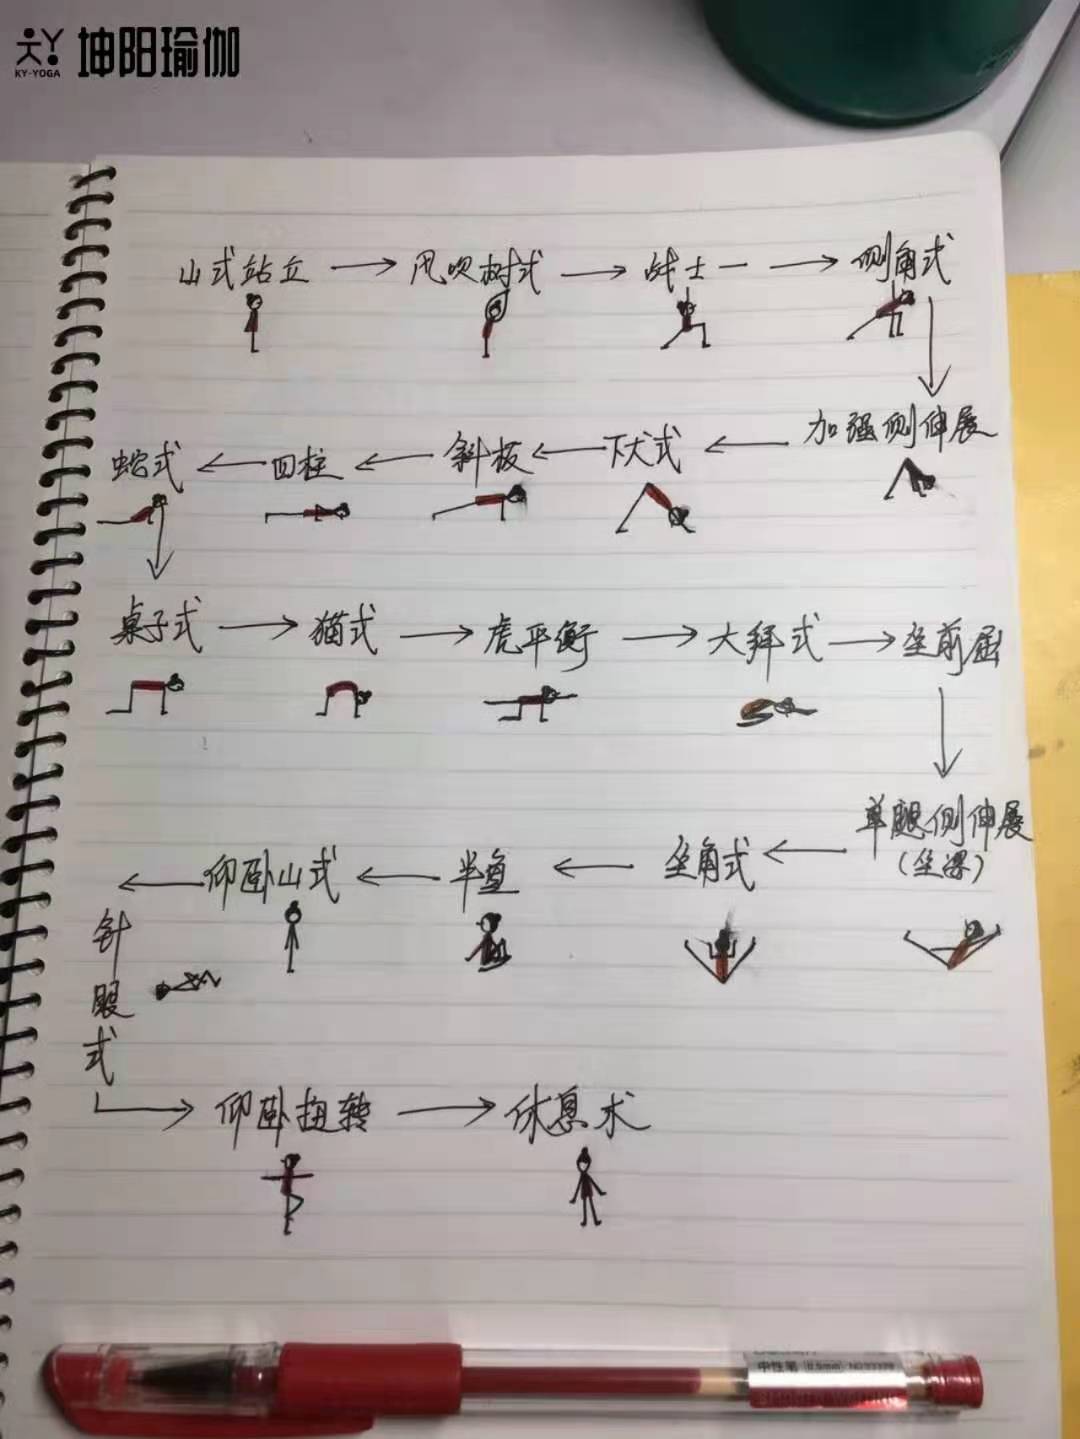 坤阳瑜伽
KY-YOGA
山式站立 → 风吹树式 → 战士一 → 侧角式
蛇式 ← 四柱 ← 斜板 ← 下犬式 ← 加强侧伸展
桌子式 → 猫式 → 虎平衡 → 大拜式 → 坐前屈
← 仰卧山式 ← 半鱼 ← 坐角式 ← 单腿侧伸展
(坐梁)
针眼式
→ 仰卧扭转 → 休息术
中性笔 0.5mm